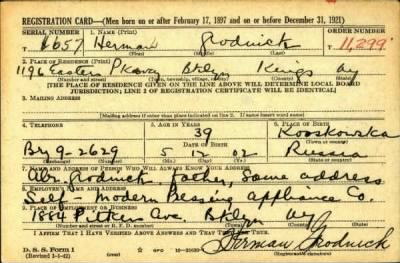 REGISTRATION CARD—(Men born on or after February 17, 1897 and on or before December 31, 1921)
SERIAL NUMBER 1. NAME (Print) ORDER NUMBER
1657 Herman Grodnick 11,299
2. PLACE OF RESIDENCE (Print)
1196 Eastern Pkway Bklyn Kings NY
(Number and street) (Town, township, village, or city) (County) (State)
[THE PLACE OF RESIDENCE GIVEN ON THE LINE ABOVE WILL DETERMINE LOCAL BOARD
JURISDICTION; LINE 2 OF REGISTRATION CERTIFICATE WILL BE IDENTICAL]
3. MAILING ADDRESS
[Mailing address if other than place indicated on line 2. If same insert word same]
4. TELEPHONE 5. AGE IN YEARS 6. PLACE OF BIRTH
39
(Town or county)
By 9-2629 5 17 02 Russia
7. NAME AND ADDRESS OF PERSON WHO WILL ALWAYS KNOW YOUR ADDRESS
Abr. Grodnick, father, same address
8. EMPLOYER'S NAME AND ADDRESS
Self - Modern Pressing Appliance Co.
9. PLACE OF EMPLOYMENT OR BUSINESS
1884 Pitkin Ave. Bklyn NY
(Number and street or R. F. D. number) (Town) (County) (State)
I AFFIRM THAT I HAVE VERIFIED ABOVE ANSWERS AND THAT THEY ARE TRUE.
D. S. S. Form 1
(Revised 1-1-42) (over)
Herman Grodnick